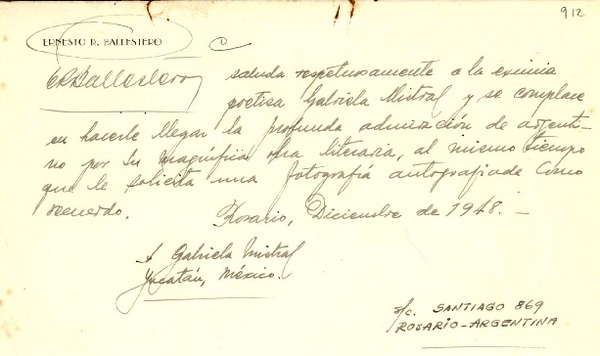 912
ERNESTO R. BALLESTERO
ERBallestero saluda respetuosamente a la eximia
poetisa Gabriela Mistral y se complace
en hacerle llegar la profunda admiración de argenti-
no por su magnífica obra literaria, al mismo tiempo
que le solicita una fotografía autografiada como
recuerdo.
Rosario, Diciembre de 1948.-
A Gabriela Mistral
Yucatán, México.
s/c. SANTIAGO 869
ROSARIO-ARGENTINA